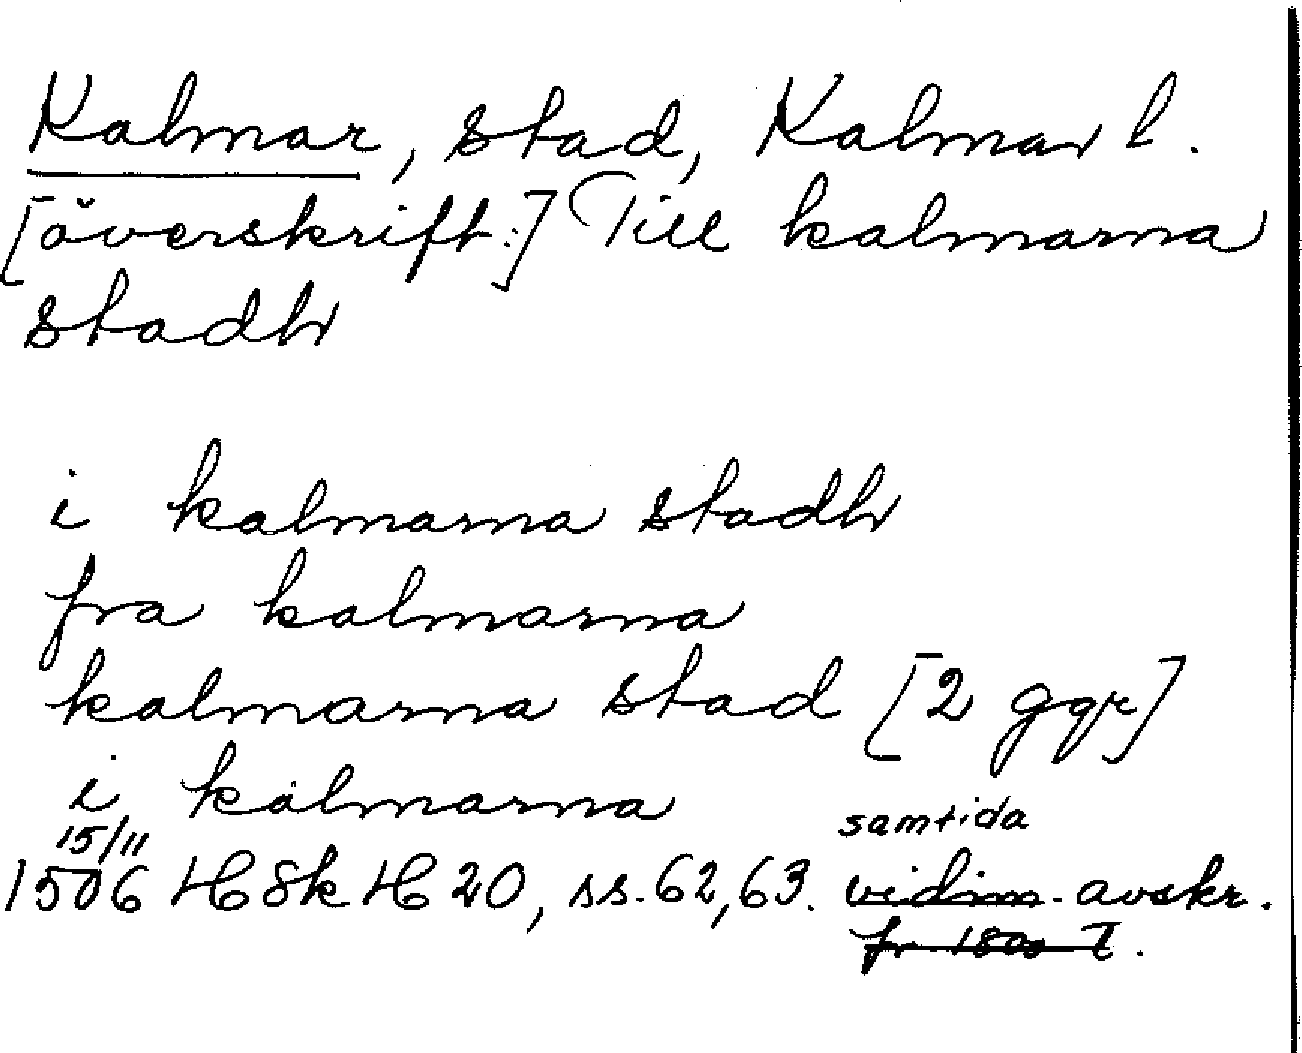 Kalmar, stad, Kalmar l.
[överskrift:] Till kalmarna
stadh
i kalmarna stadh
fra kalmarna
kalmarna stad [2 ggr]
i kalmarna
15/11 samtida
1506 HSk H 20, ss. 62, 63. vidim. avskr.
fr. 1800 t.